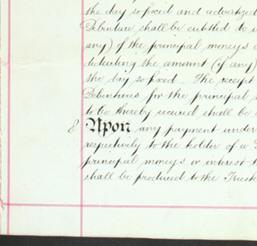 the day so fixed and advertized
Debenture shall be entitled to
any) of the principal moneys
including the amount (if any)
the day so fixed. The receipt
Debentures for the principal
to be thereby secured shall be
8 Upon any payment under
respectively to the holder of a
principal moneys or interest
shall be produced to the Trustees